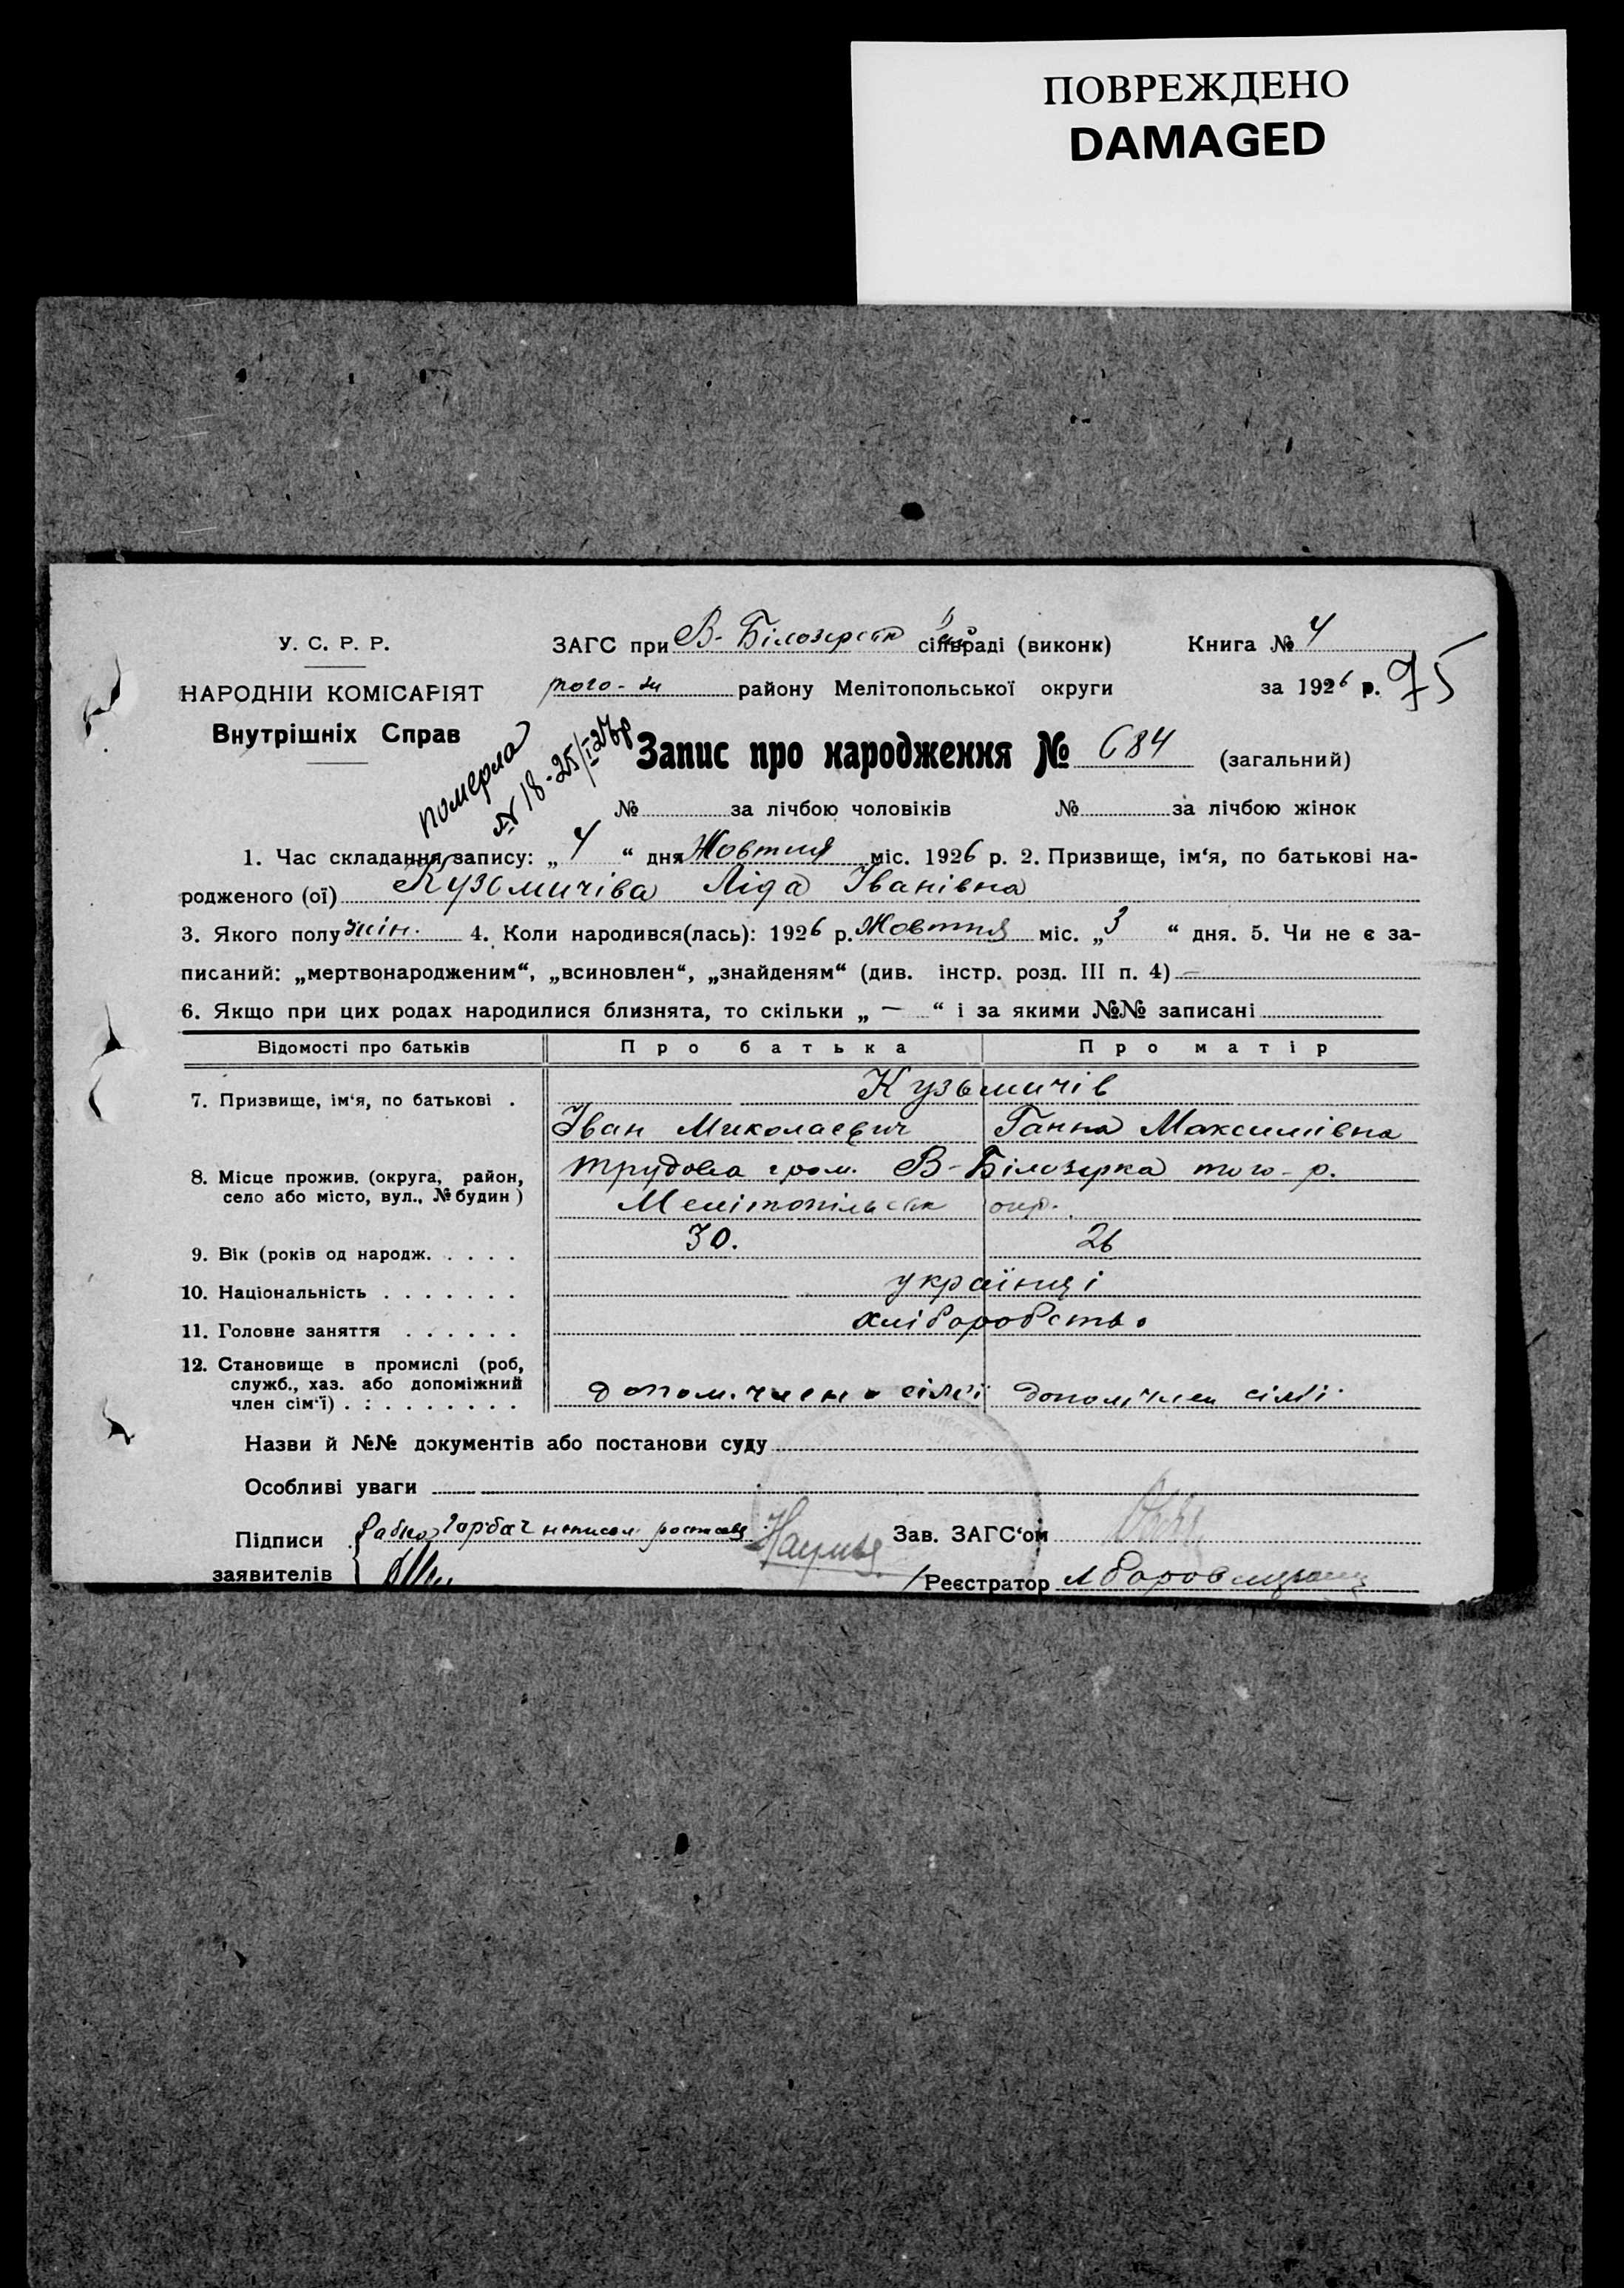 ПОВРЕЖДЕНО
DAMAGED
У. С. Р. Р.
НАРОДНІЙ КОМІСАРІЯТ
Внутрішніх Справ
ЗАГС при В-Білозерськ сільраді (виконк)
того-ж району Мелітопольської округи
Книга № 4
за 1926 р. 75
померла
№ 18-25/I 27р
Запис про народження № 684 (загальний)
№ за лічбою чоловіків № за лічбою жінок
1. Час складання запису: „4“ дня Жовтня міс. 1926 р. 2. Призвище, ім‘я, по батькові на-
родженого (ої) Кузьмичіва Ліда Іванівна
3. Якого полу жін. 4. Коли народився(лась): 1926 р. Жовтня міс. „3“ дня. 5. Чи не є за-
писаний: „мертвонародженим“, „всиновлен“, „знайденям“ (див. інстр. розд. III п. 4) —
6. Якщо при цих родах народилися близнята, то скільки „ — “ і за якими №№ записані
Відомості про батьків Про батька Про матір
7. Призвище, ім‘я, по батькові . Кузьмичів
Іван Миколаєвич Ганна Максимівна
8. Місце прожив. (округа, район, село або місто, вул., № будин ) трудова гром. В-Білозерка того-р.
Мелітопільськ окр.
9. Вік (років од народж. . . . . 30. 26
10. Національність . . . . . . . українці
11. Головне заняття . . . . . . хліборобство
12. Становище в промислі (роб,
служб., хаз. або допоміжний
член сім‘ї) . : . . . . . . . допом. член сім'ї допом. член сім'ї
Назви й №№ документів або постанови суду
Особливі уваги
Підписи
заявителів
Зав. ЗАГС‘ом
Реєстратор